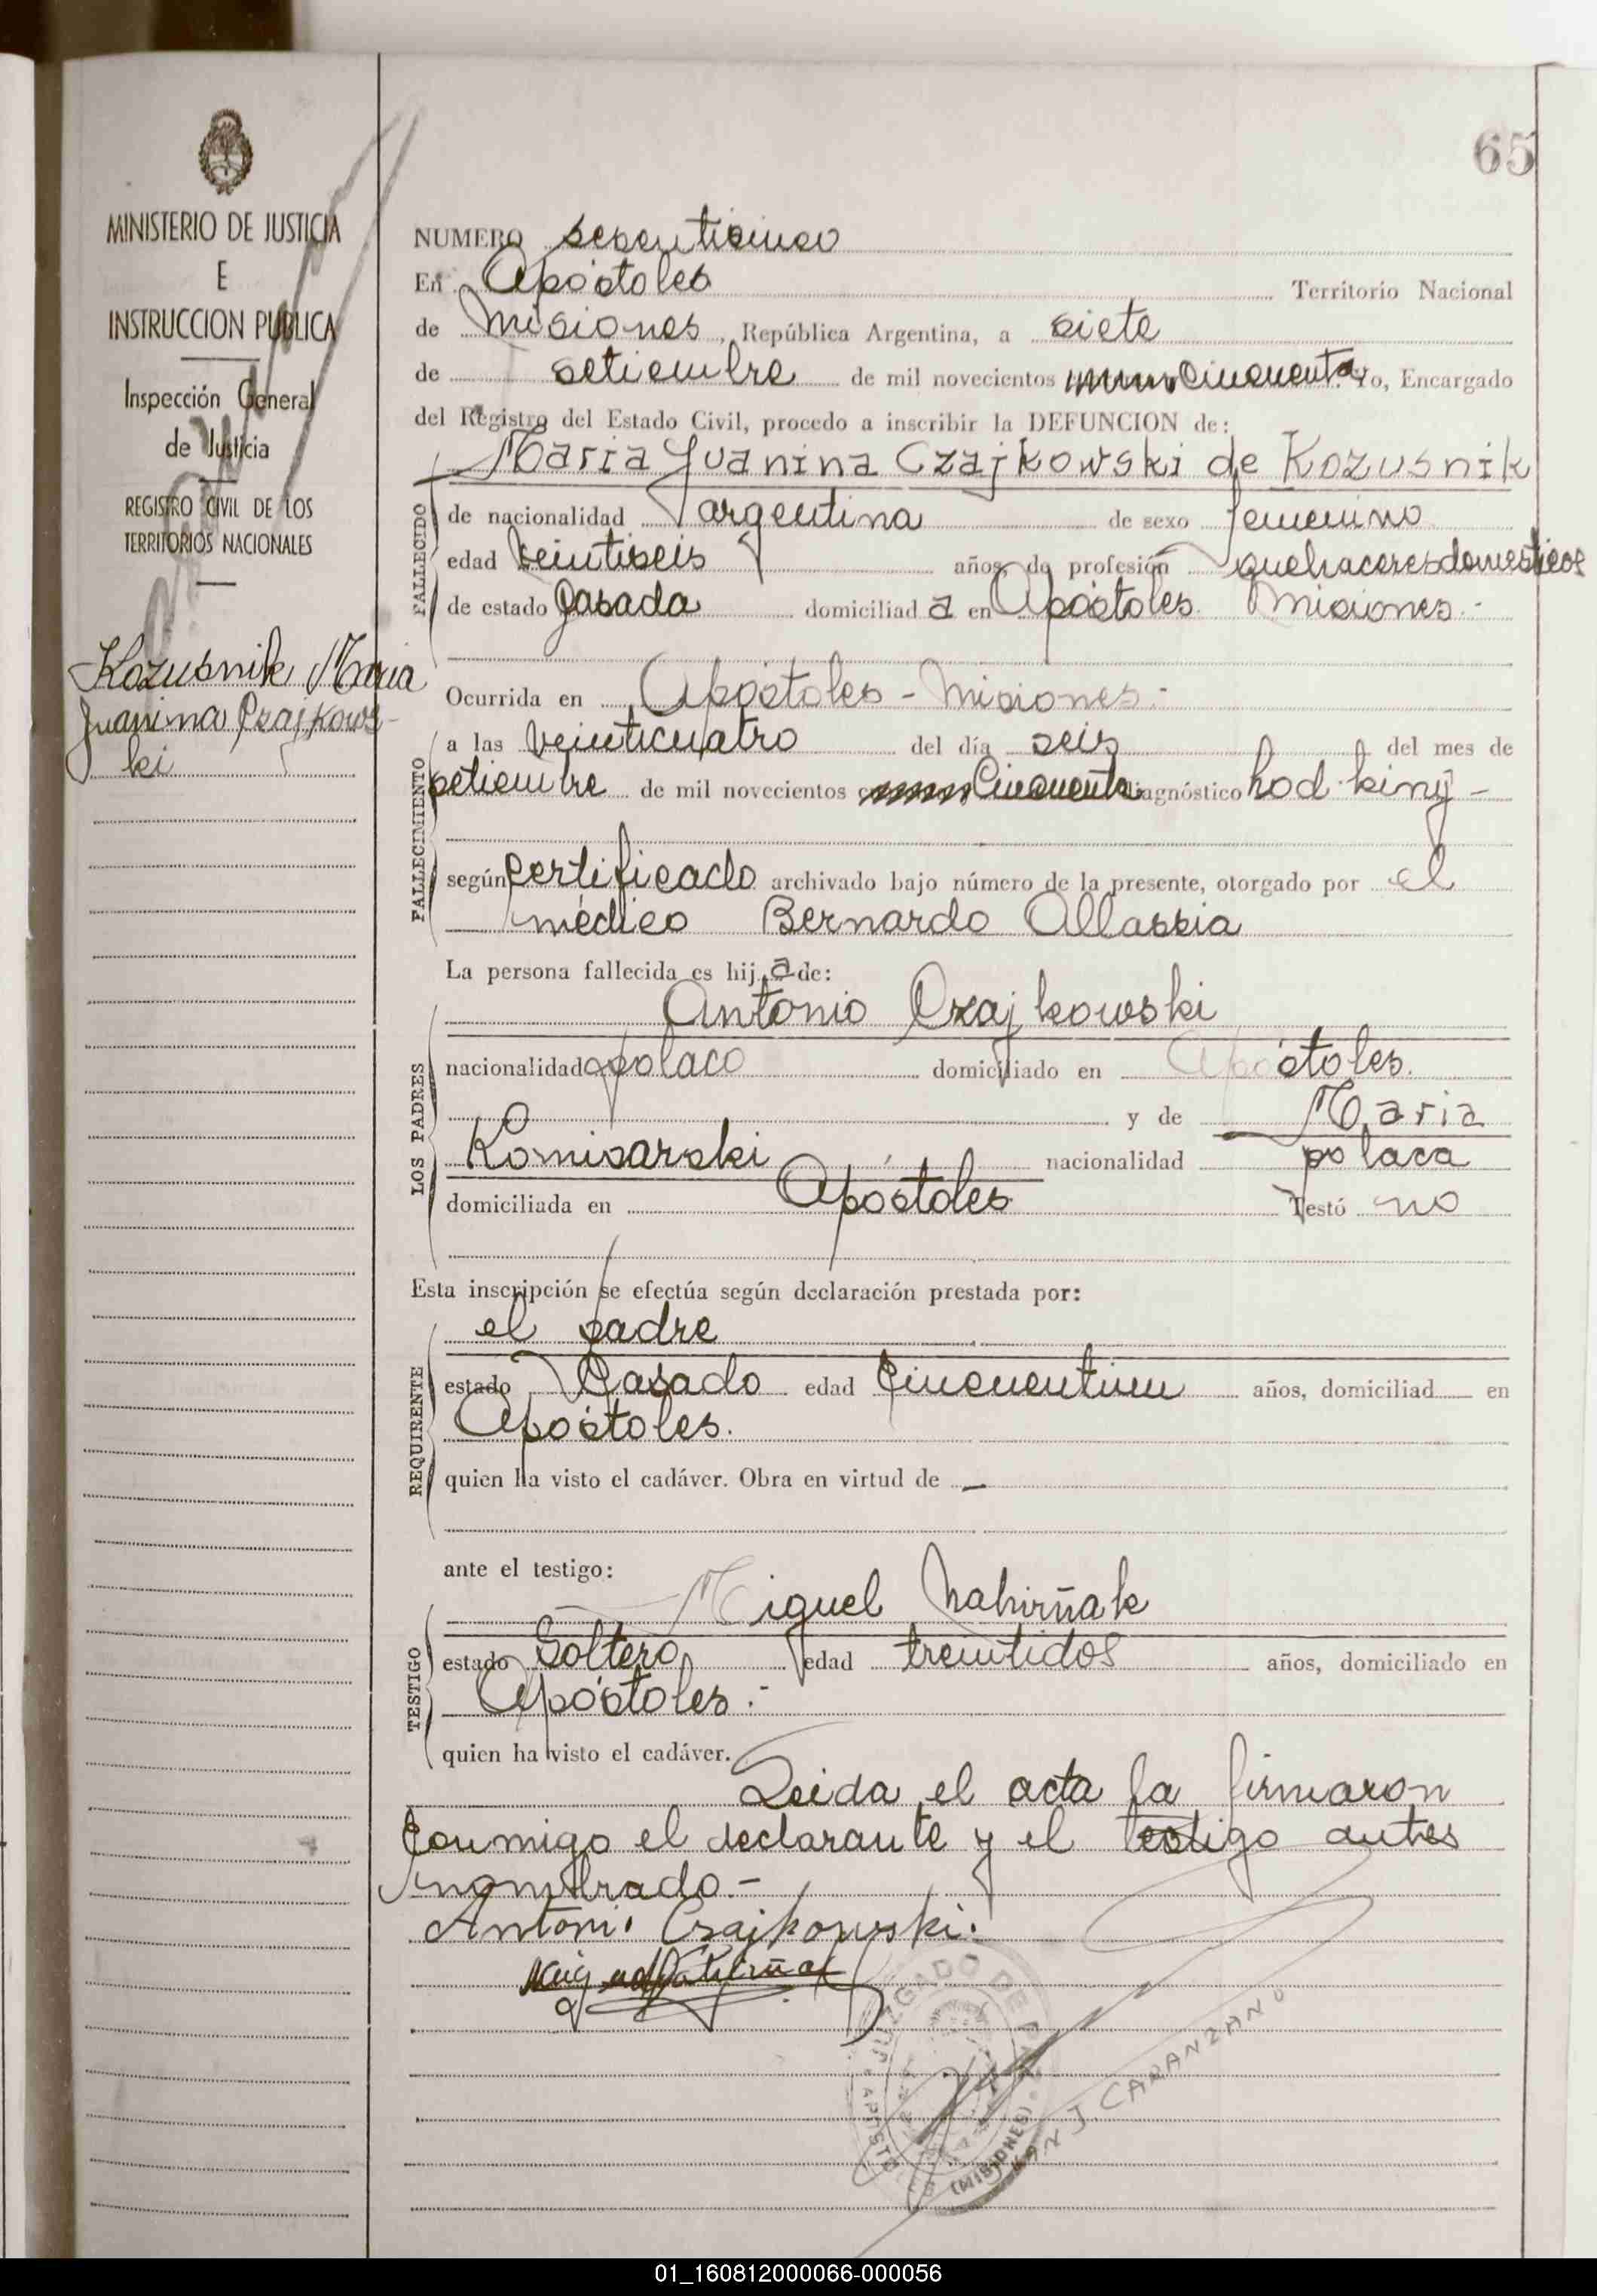 65
MINISTERIO DE JUSTICIA
E
INSTRUCCION PUBLICA
Inspección General
de Justicia
REGISTRO CIVIL DE LOS
TERRITORIOS NACIONALES
Kozusnik Maria
Juanina Czajkows-
ki
NUMERO sesenticinco
En Apóstoles Territorio Nacional
de Misiones, República Argentina, a siete
de setiembre de mil novecientos cincuenta Yo, Encargado
del Registro del Estado Civil, procedo a inscribir la DEFUNCION de:
Maria Juanina Czajkowski de Kozusnik
FALLECIDO
de nacionalidad argentina de sexo femenino
edad veintiseis años, de profesión quehaceres domesticos
de estado Casada domiciliad a en Apóstoles Misiones.-
Ocurrida en Apóstoles - Misiones.-
FALLECIMIENTO
a las veinticuatro del día seis del mes de
setiembre de mil novecientos cincuenta diagnóstico hod-king-
según certificado archivado bajo número de la presente, otorgado por el
médico Bernardo Allassia
La persona fallecida es hij a de:
LOS PADRES
Antonio Czajkowski
nacionalidad polaco domiciliado en Apóstoles.
y de Maria
Komisarski nacionalidad polaca
domiciliada en Apóstoles Testó no
Esta inscripción se efectúa según declaración prestada por:
REQUIRENTE
el padre
estado Casado edad cincuentiun años, domiciliad en
Apóstoles.
quien ha visto el cadáver. Obra en virtud de -
ante el testigo:
TESTIGO
Miguel Nahirñak
estado Soltero edad treintidos años, domiciliado en
Apóstoles.-
quien ha visto el cadáver.
Leida el acta la firmaron
conmigo el declarante y el testigo antes
nombrado.-
Antoni Czajkowski.
JUZGADO DE PAZ
(MISIONES)
J. CARANZANO
01_160812000066-000056